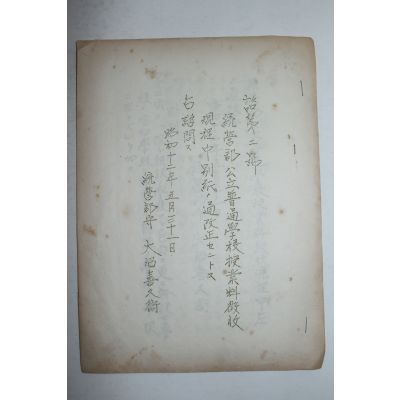 諮第二號
統營郡公立普通學校授業料徵收
規程中別紙ノ通改正セントス
右諮問ス
昭和十二年五月三十一日
統營郡守 大池喜久衛